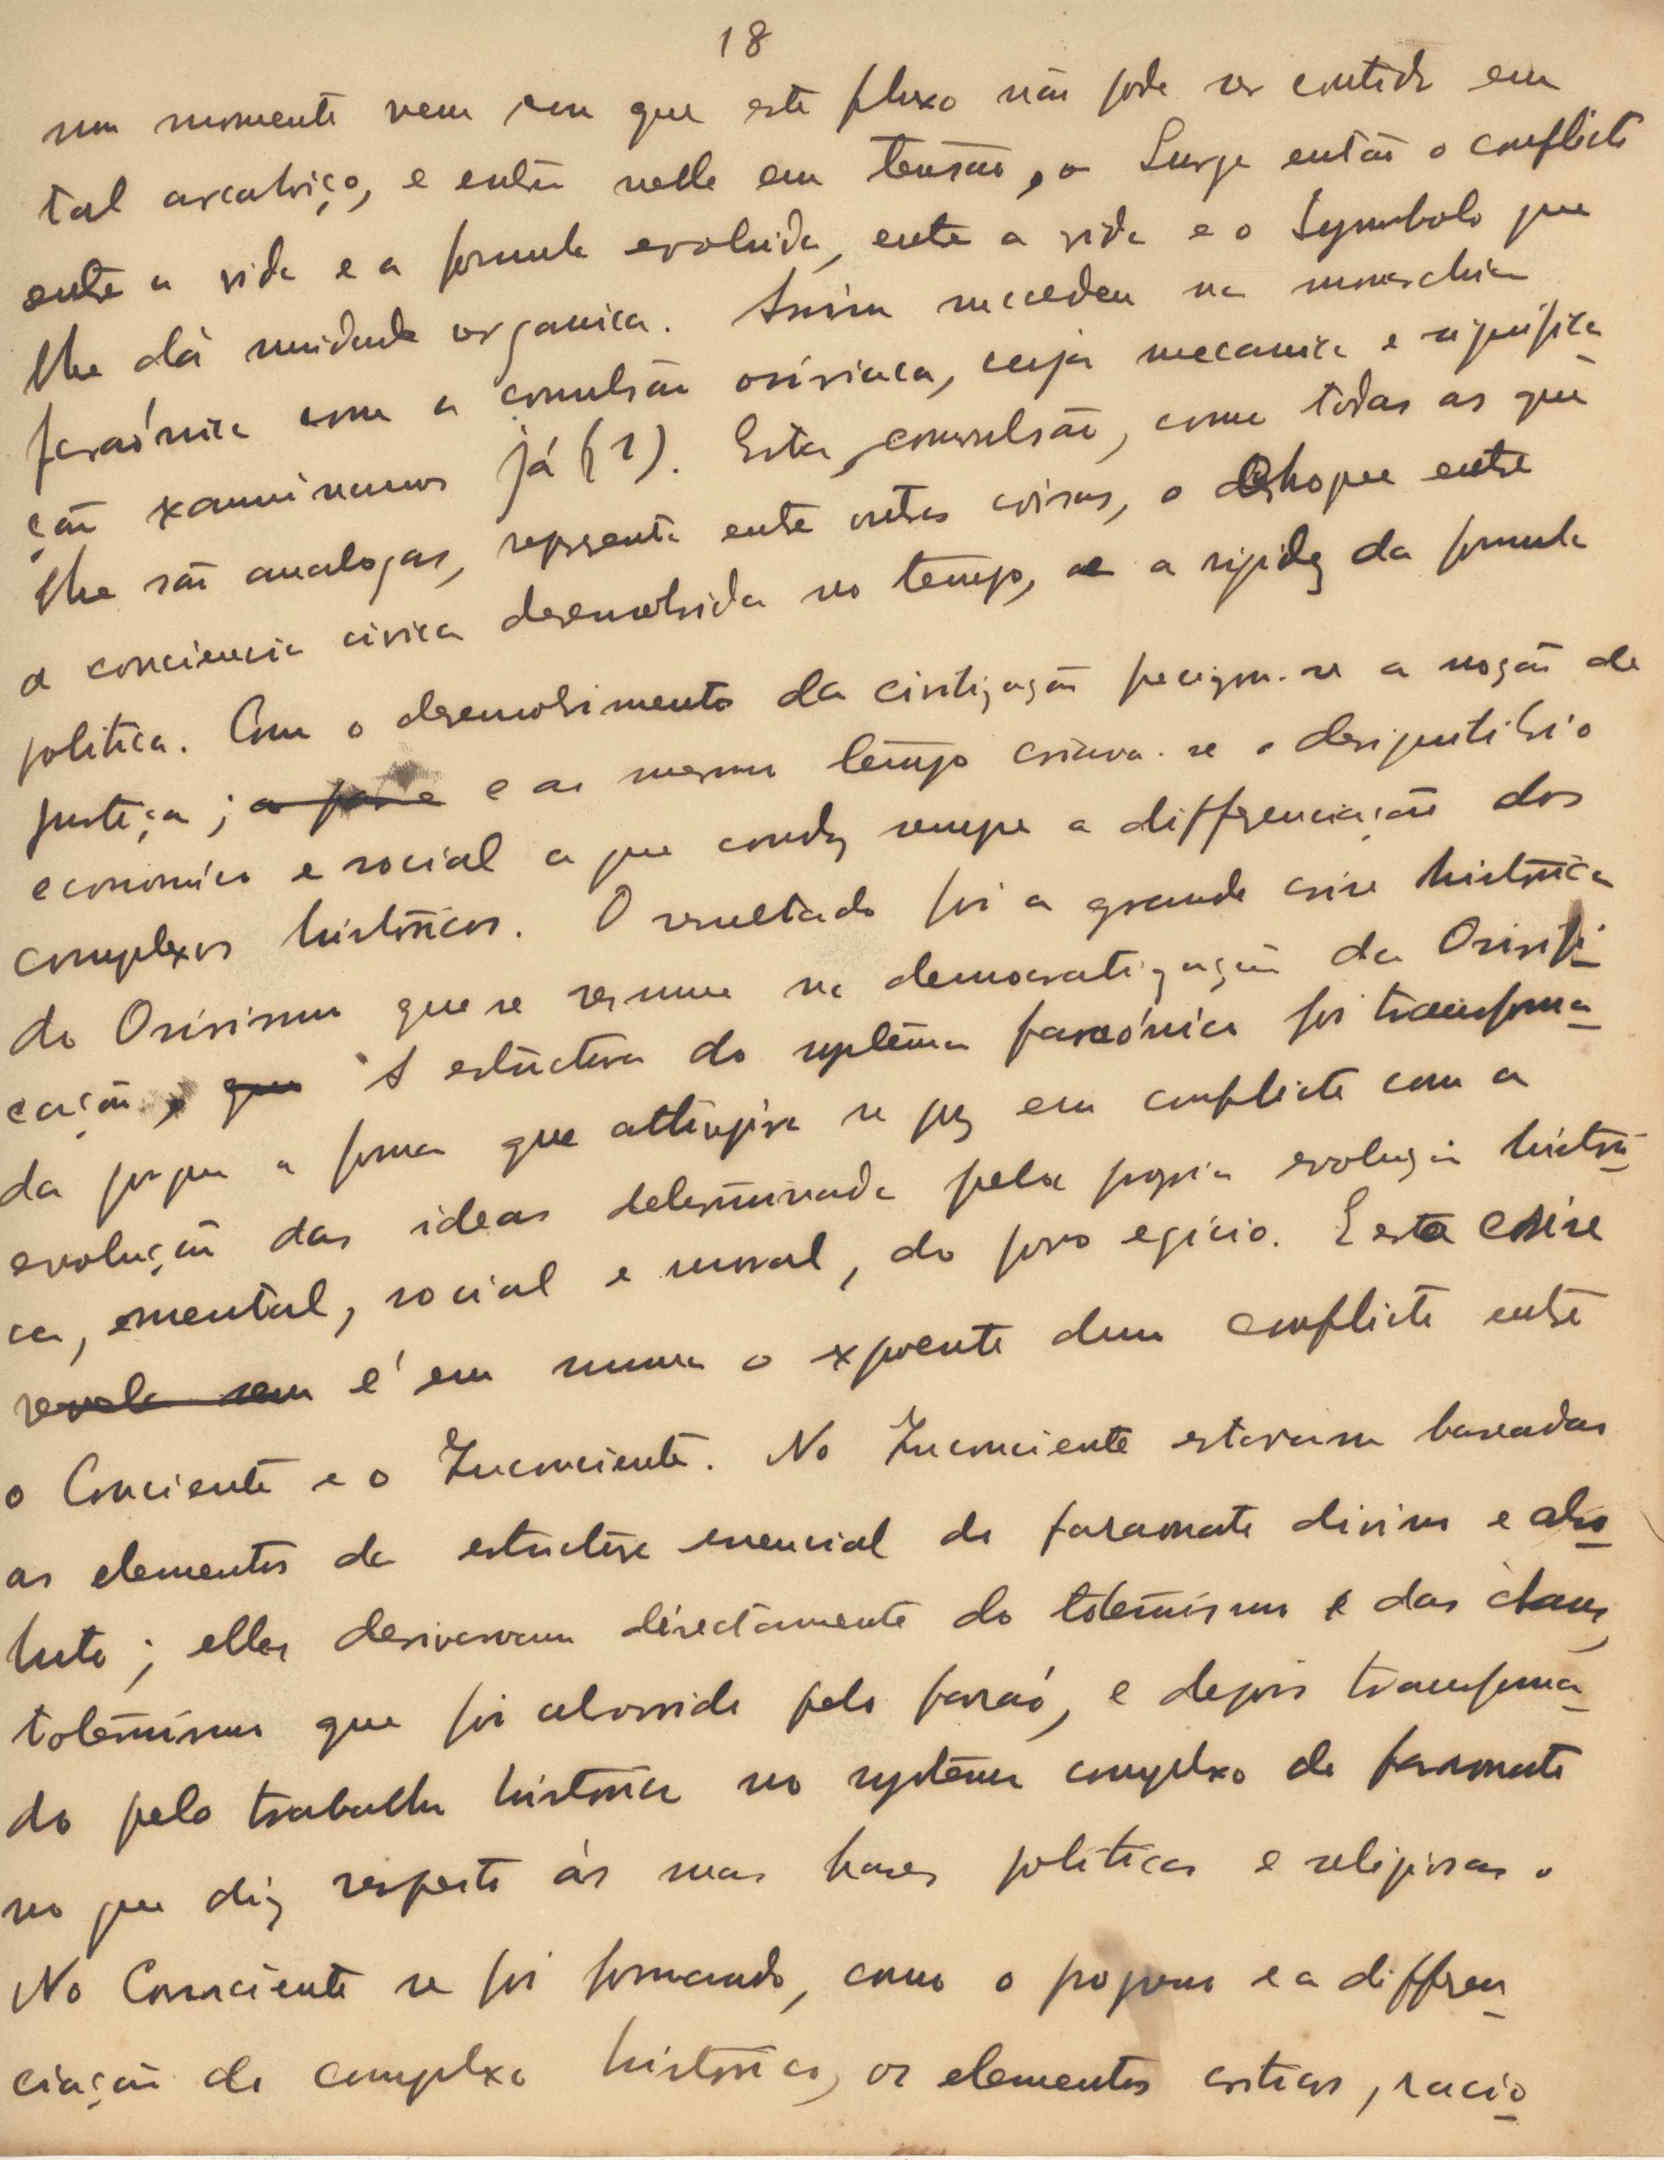 18
um momento vem em que este fluxo não pode ser contido em
tal arcaboiço, e entra nelle em tensão, Surge então o conflicto
entre a vida e a formula evoluida, entre a vida e o Symbolo que
lhe dá unidade organica. Assim succedeu na monarchia
faraónica com a convulsão osiriaca, cuja mecanica e significa-
ção examinamos já (1). Esta convulsão, como todas as que
lhe são analogas, represente entre outras coisas, o choque entre
a conciencia civica desenvolvida no tempo, e a rigidez da formula
politica. Com o desenvolvimento da civilização precizou-se a noção de
justiça; e ao mesmo tempo criava-se o desiquilibrio
economico e social a que conduz sempre a differenciação dos
complexos históricos. O resultado foi a grande crise histórica
do Osirismo que se resume na democratização da Osirifi-
cação, que A estructura do systema faraónico foi transforma-
da porque a forma que attingira se poz em conflicto com a
evolução das ideas determinada pela propria evolução históri-
ca, mental, social e moral, do povo egicio. E esta crise
revela sem é em summa o expoente dum conflicto entre
o Conciente e o Inconciente. No Inconciente estavam baseadas
as elementos da estructura essencial do faraonato divino e abso-
luto; elles derivavam directamente do totemismo e das clans,
totemismo que foi absorvido pelo faraó, e depois transforma-
do pelo trabalho histórico no systema complexo do faraonato
no que diz respeito ás suas bases politicas e religiosas.
No Consciente se foi formando, como o progresso e a differen-
ciação do complexo histórico, os elementos criticos, racio-